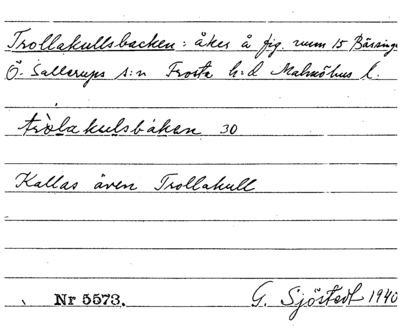 Trollakullsbacken: åker å fig. num 15 Bäsinge
Ö. Sallerups s:n Frosta h:d Malmöhus l.
trolakulsbákan 30
Kallas även Trollakull
Nr 5573. G. Sjöstedt 1940